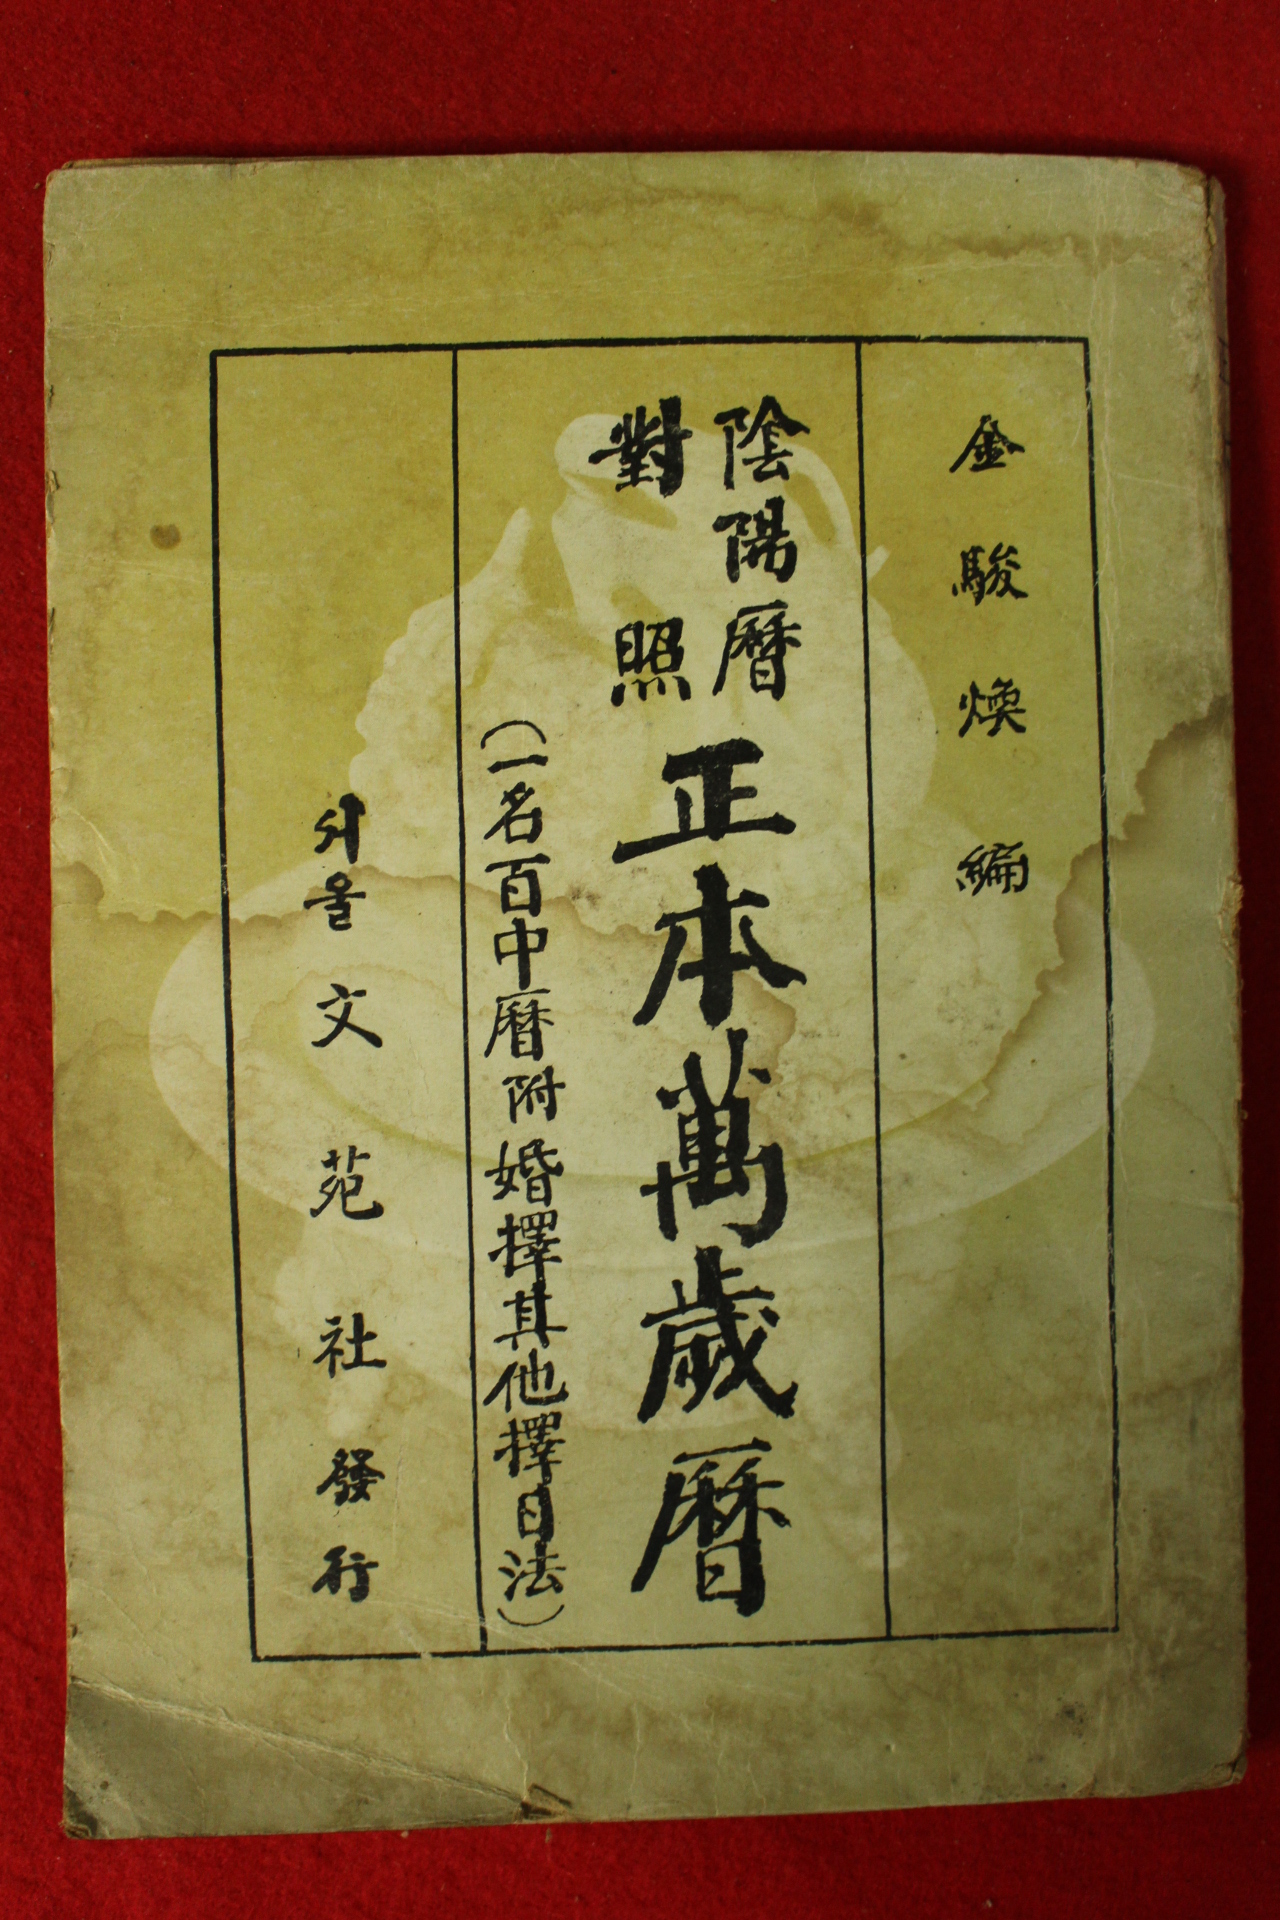 金駿煥 編
陰陽曆
對照
正本萬歲曆
(一名百中曆附婚擇其他擇日法)
서울 文苑社 發行